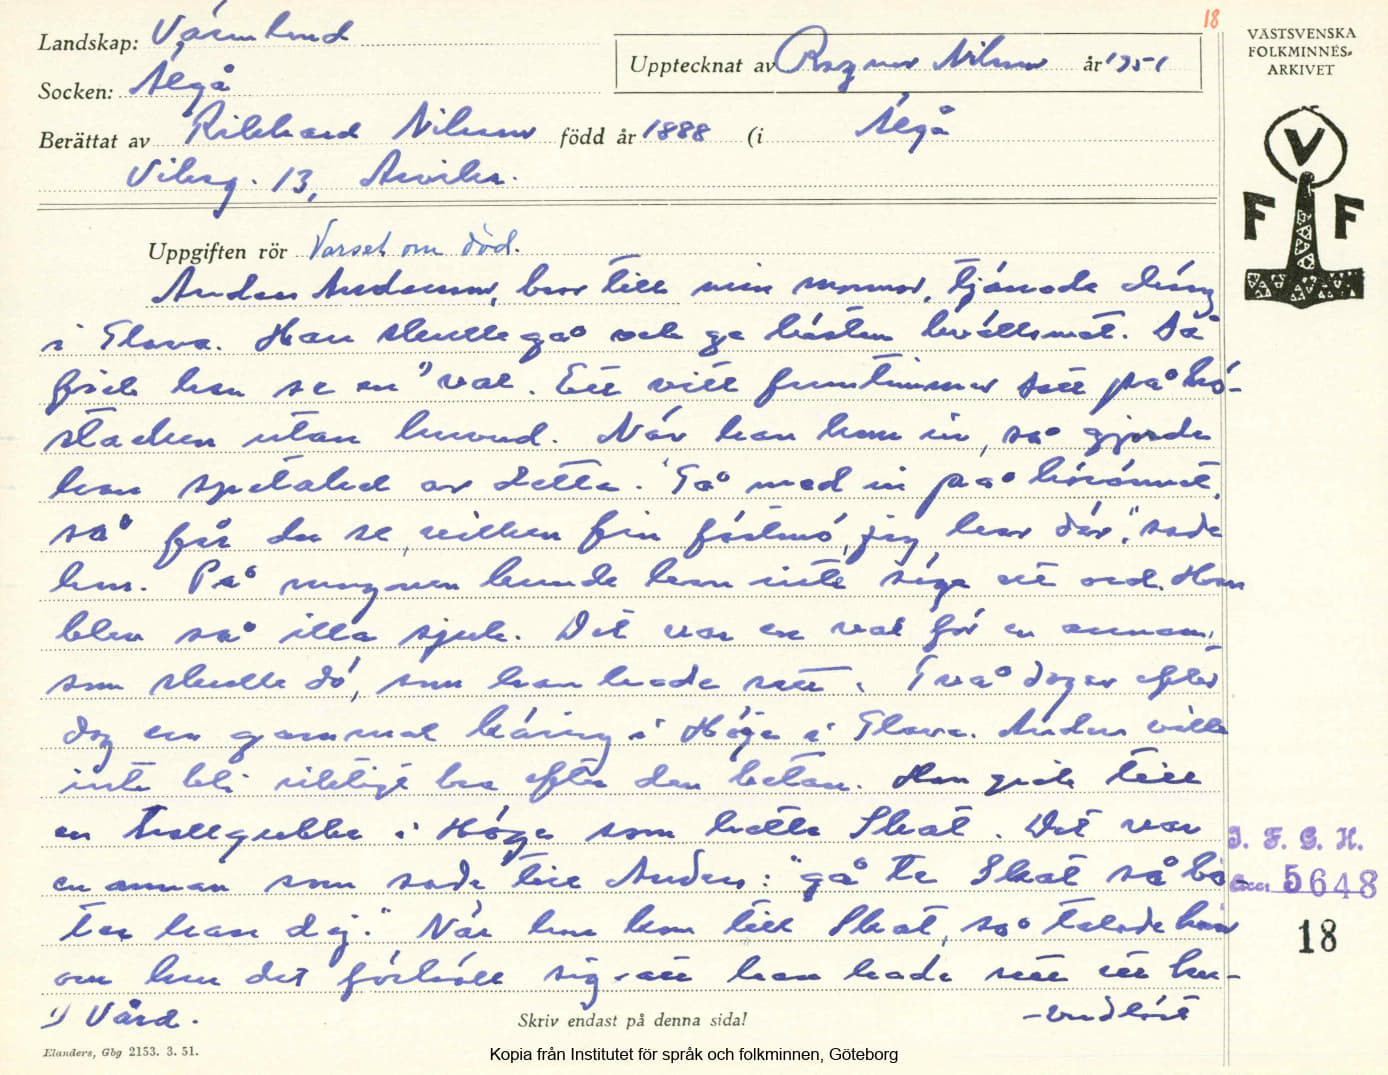 18
Landskap: Värmland
VÄSTSVENSKA
FOLKMINNES-
ARKIVET
Upptecknat av Ragnar Nilsson år 1951
Socken: Älgå
Berättat av Rikhard Nilsson född år 1888 (i Älgå
Viksg. 13, Arvika.
V
F F
Uppgiften rör Varsel om död.
Anders Andersson, bror till min mormor, tjänade dräng
i Glava. Han skulle gå och ge hästen kvällsmat. Så
fick han se en 1) val. Ett vitt fruntimmer satt på hö-
stacken utan huvud. När han kom in, så gjorde
han spetakel av detta. "Gå med in på hörännet,
så får du se, vilken fin fästmö, jag har där," sade
han. På morgonen kunde han inte säga ett ord. Han
blev så illa sjuk. Det var en val för en annan,
som skulle dö, som han hade sett. Två dagar efter
dog en gammal käring i Höge i Glava. Anders ville
inte bli riktigt bra efter den betan. Han gick till
en trollgubbe i Höge som hette Skat. Det var
en annan som sade till Anders: "gå te Skat så bö-
ter han dej." När han kom till Skat, så talade han
om hur det förhöll sig att han hade sett ett hu-
-vudlöst
1) Vård.
Skriv endast på denna sida!
Elanders, Gbg 2153. 3. 51.
I. F. G. H.
Acc: 5648
18
Kopia från Institutet för språk och folkminnen, Göteborg